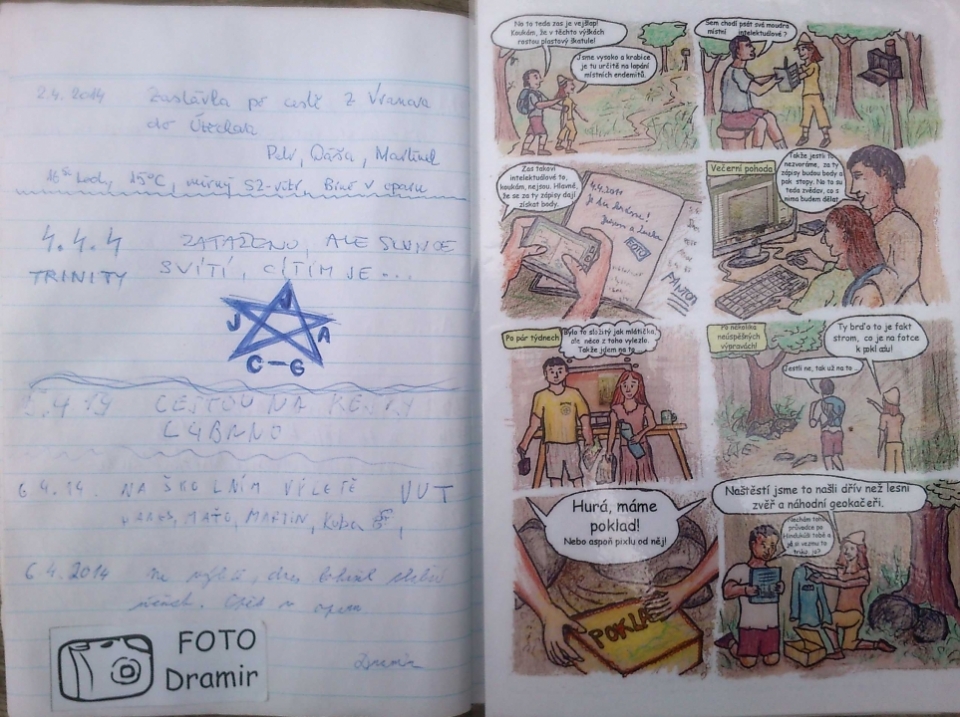 2.4. 2014 Zastávka po cestě z Vranova
do Útěchova
Petr, Dáša, Martina
15°C, mírný SZ-vítr, Brno v oparu
4.4.4 ZATAŽENO, ALE SLUNCE
TRINITY SVÍTÍ, CÍTÍM JE...
J J A G - C
CESTOU NA
6.4.14. NA ŠKOLNÍM VÝLETĚ VUT
MAŤO, MARTIN, Kuba
6.4.2014 na výletě, dnes bohužel
Dramir
FOTO
Dramir
No to teda zas je vejšlap!
Koukám, že v těchto výškách
rostou plastový škatule!
Jsme vysoko a krabice
je tu určitě na lapání
místních endemitů.
Sem chodí psát svá moudra
místní intelektuálové ?
Zas takoví
intelektuálové to,
koukám, nejsou. Hlavně,
že se za ty zápisy dají
získat body.
4.4.2011
FOTO
Večerní pohoda
Takže jestli to
nezvoráme, za ty
zápisy budou body a
pak stopy. No to su
teda zvědav, co s
nima budem dělat.
Po pár týdnech
Bylo to složitý jak mlátička,
ale něco z toho vylezlo.
Takže jdem na to...
Po několika
neúspěšných
výpravách!
Jestli ne, tak už na to ..
Ty brďo to je fakt
strom, co je na fotce
k pokladu!
Hurá, máme
poklad!
Nebo aspoň pixlu od něj!
POKLAD
Naštěstí jsme to našli dřív než lesní
zvěř a náhodní geokačeři.
Nechám toho
průvodce po
Hindúkúši tobě a
já si vezmu to
triko, jo?